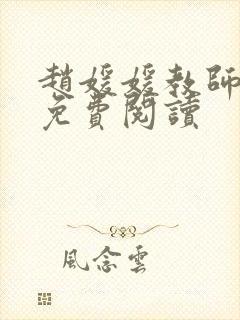 趙媛媛教師
免費閱讀
風念雲